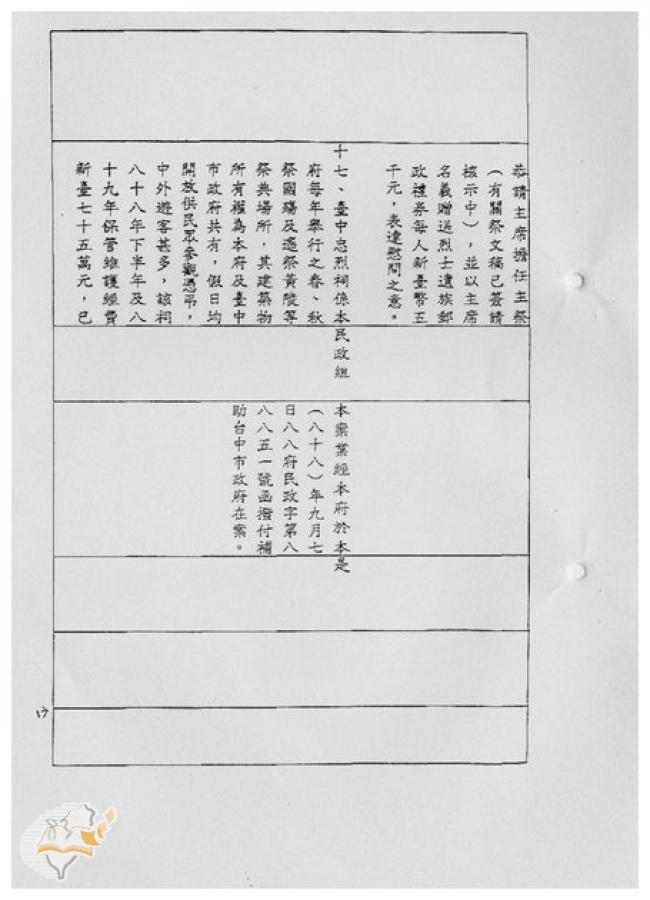 恭請主席擔任主祭
（有關祭文稿已簽請
核示中），並以主席
名義贈送烈士遺族郵
政禮券每人新臺幣五
千元，表達慰問之意。
十七、臺中忠烈祠係本
府每年舉行之春、秋
祭國殤及遙祭黃陵等
祭典場所，其建築物
所有權為本府及臺中
市政府共有，假日均
開放供民眾參觀憑弔，
中外遊客甚多，該祠
八十八年下半年及八
十九年保管維護經費
新臺七十五萬元，已
民政組
本案業經本府於本
（八十八）年九月七
日八八府民政字第八
八五一號函撥付補
助台中市政府在案。
是
17